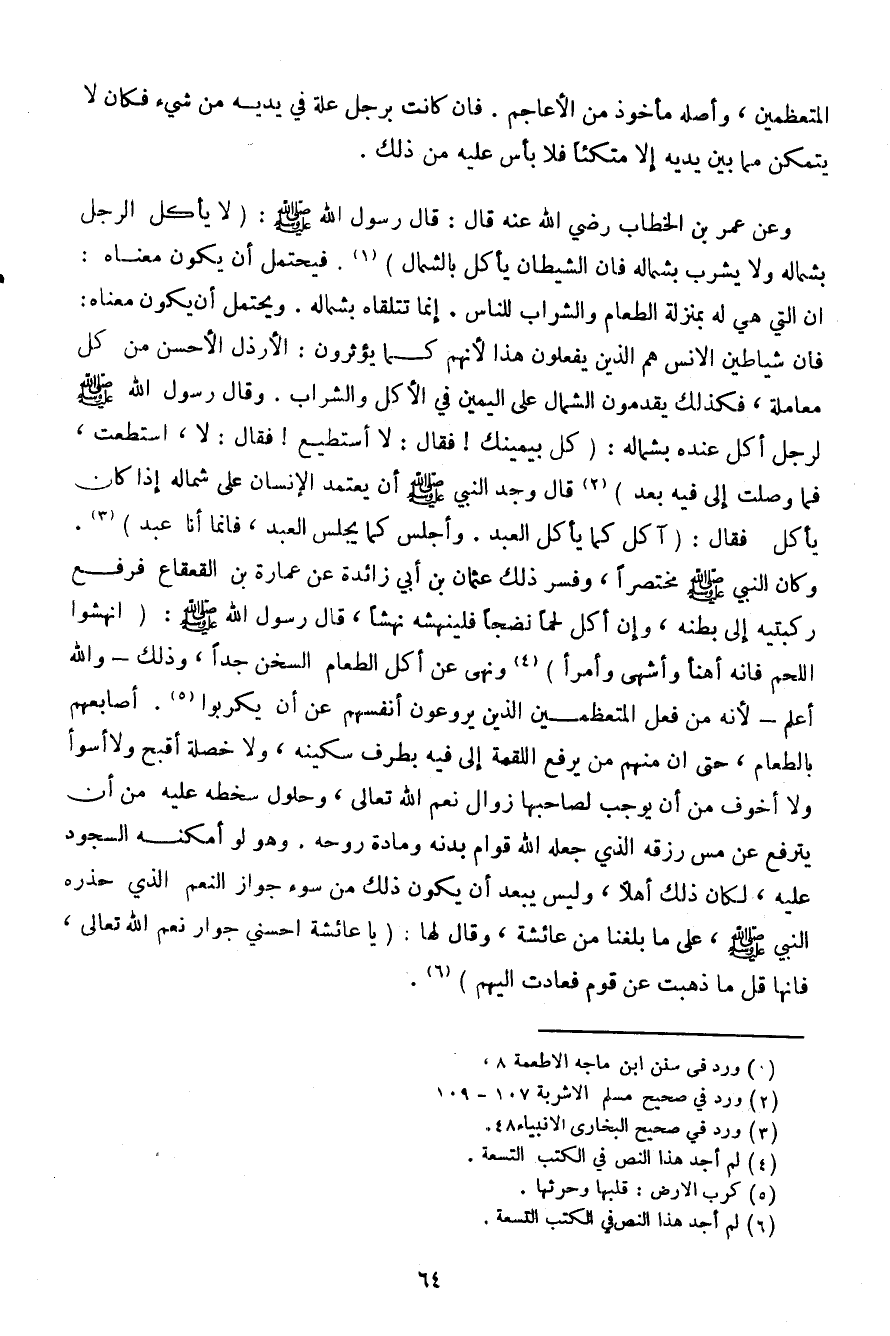 المتعظمين ، وأصله مأخوذ من الأعاجم . فان كانت برجل علة في يديـه من شيء فكان لا
يتمكن مما بين يديه إلا متكئاً فلا بأس عليه من ذلك .
وعن عمر بن الخطاب رضي الله عنه قال : قال رسول الله ﷺ : ( لا يأكل الرجل
بشماله ولا يشرب بشماله فان الشيطان يأكل بالشمال ) (١) . فيحتمل أن يكون معناه :
ان التي هي له بمنزلة الطعام والشراب للناس . إنما تتلقاه بشماله . ويحتمل أن يكون معناه :
فان شياطين الانس هم الذين يفعلون هذا لأنهم كـما يؤثرون : الأرذل الأحسن من كل
معاملة ، فكذلك يقدمون الشمال على اليمين في الأكل والشراب . وقال رسول الله ﷺ
لرجل أكل عنده بشماله : ( كل بيمينك ! فقال : لا أستطيع ! فقال : لا ، استطعت ،
فما وصلت إلى فيه بعد ) (٢) قال وجد النبي ﷺ أن يعتمد الإنسان على شماله إذا كان
يأكل فقال : ( آكل كما يأكل العبد . وأجلس كما يجلس العبد ، فانما أنا عبد ) (٣) .
وكان النبي ﷺ مختصراً ، وفسر ذلك عثمان بن أبي زائدة عن عمارة بن القعقاع فرفـع
ركبتيه إلى بطنه ، وإن أكل لحماً نضجاً فلينهشه نهشاً ، قال رسول الله ﷺ : ( انهشوا
اللحم فانه أهنأ وأشهى وأمرأ ) (٤) ونهى عن أكل الطعام السخن جداً ، وذلك – والله
أعلم – لأنه من فعل المتعظمـين الذين يروعون أنفسهم عن أن يكربوا (٥) . أصابعهم
بالطعام ، حتى ان منهم من يرفع اللقمة إلى فيه بطرف سكينه ، ولا خصلة أقبح ولا أسوأ
ولا أخوف من أن يوجب لصاحبها زوال نعم الله تعالى ، وحلول سخطه عليه من أن
يترفع عن مس رزقه الذي جعله الله قوام بدنه ومادة روحه . وهو لو أمكنـه السجود
عليه ، لكان ذلك أهلاً ، وليس يبعد أن يكون ذلك من سوء جواز النعم الذي حذره
النبي ﷺ ، على ما بلغنا من عائشة ، وقال لها : ( يا عائشة احسني جوار نعم الله تعالى ،
فانها قل ما ذهبت عن قوم فعادت اليهم ) (٦) .
(٠) ورد في سنن ابن ماجه الاطعمة ٨ ،
(٢) ورد في صحيح مسلم الاشربة ١٠٧ – ١٠٩
(٣) ورد في صحيح البخارى الانبياء ٤٨ .
(٤) لم أجد هذا النص في الكتب التسعة .
(٥) كرب الارض : قلبها وحرثها .
(٦) لم أجد هذا النص في الكتب التسعة .
٦٤